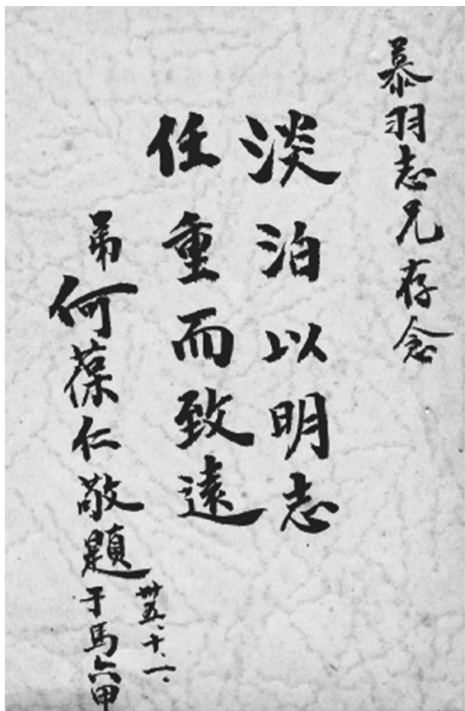 慕羽志兄存念
淡泊以明志
任重而致遠
弟何葆仁敬題
卅五、十、一、
于馬六甲